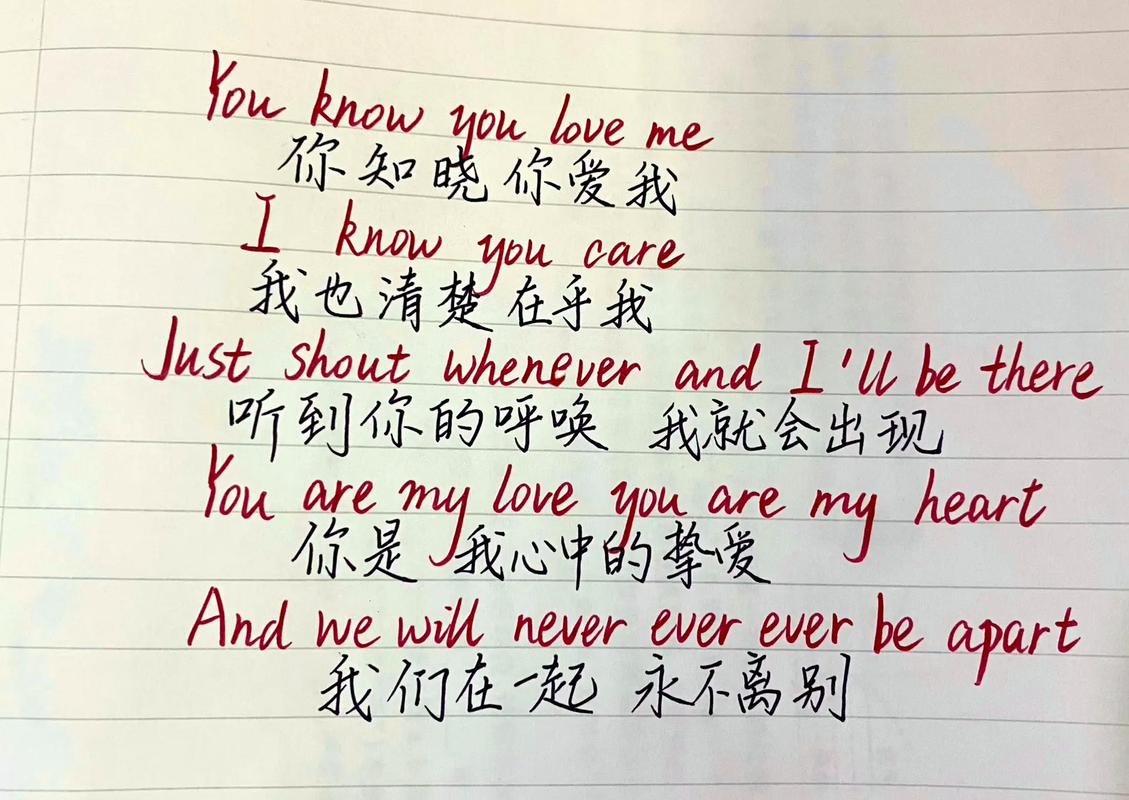 You know you love me
你知晓你爱我
I know you care
我也清楚在乎我
Just shout whenever and I'll be there
听到你的呼唤 我就会出现
You are my love you are my heart
你是 我心中的挚爱
And we will never ever ever be apart
我们在一起 永不离别